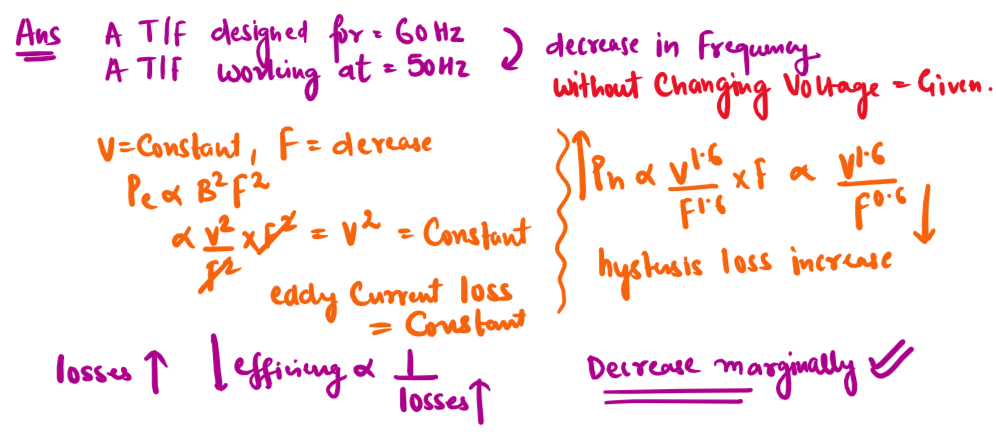 Ans A T/F designed for = 60 Hz
A T/F working at = 50 Hz
decrease in Frequency
without Changing Voltage = Given.
V = Constant, F = derease
Pe ∝ B² F²
∝ V²/F² × F² = V² = Constant
eddy Current loss
= Constant
↑ Ph ∝ V^1.6/F^1.6 × F ∝ V^1.6/F^0.6 ↓
hystesis loss increase
losses ↑ ↓ efficiency ∝ 1/losses ↑
Decrease marginally ✓